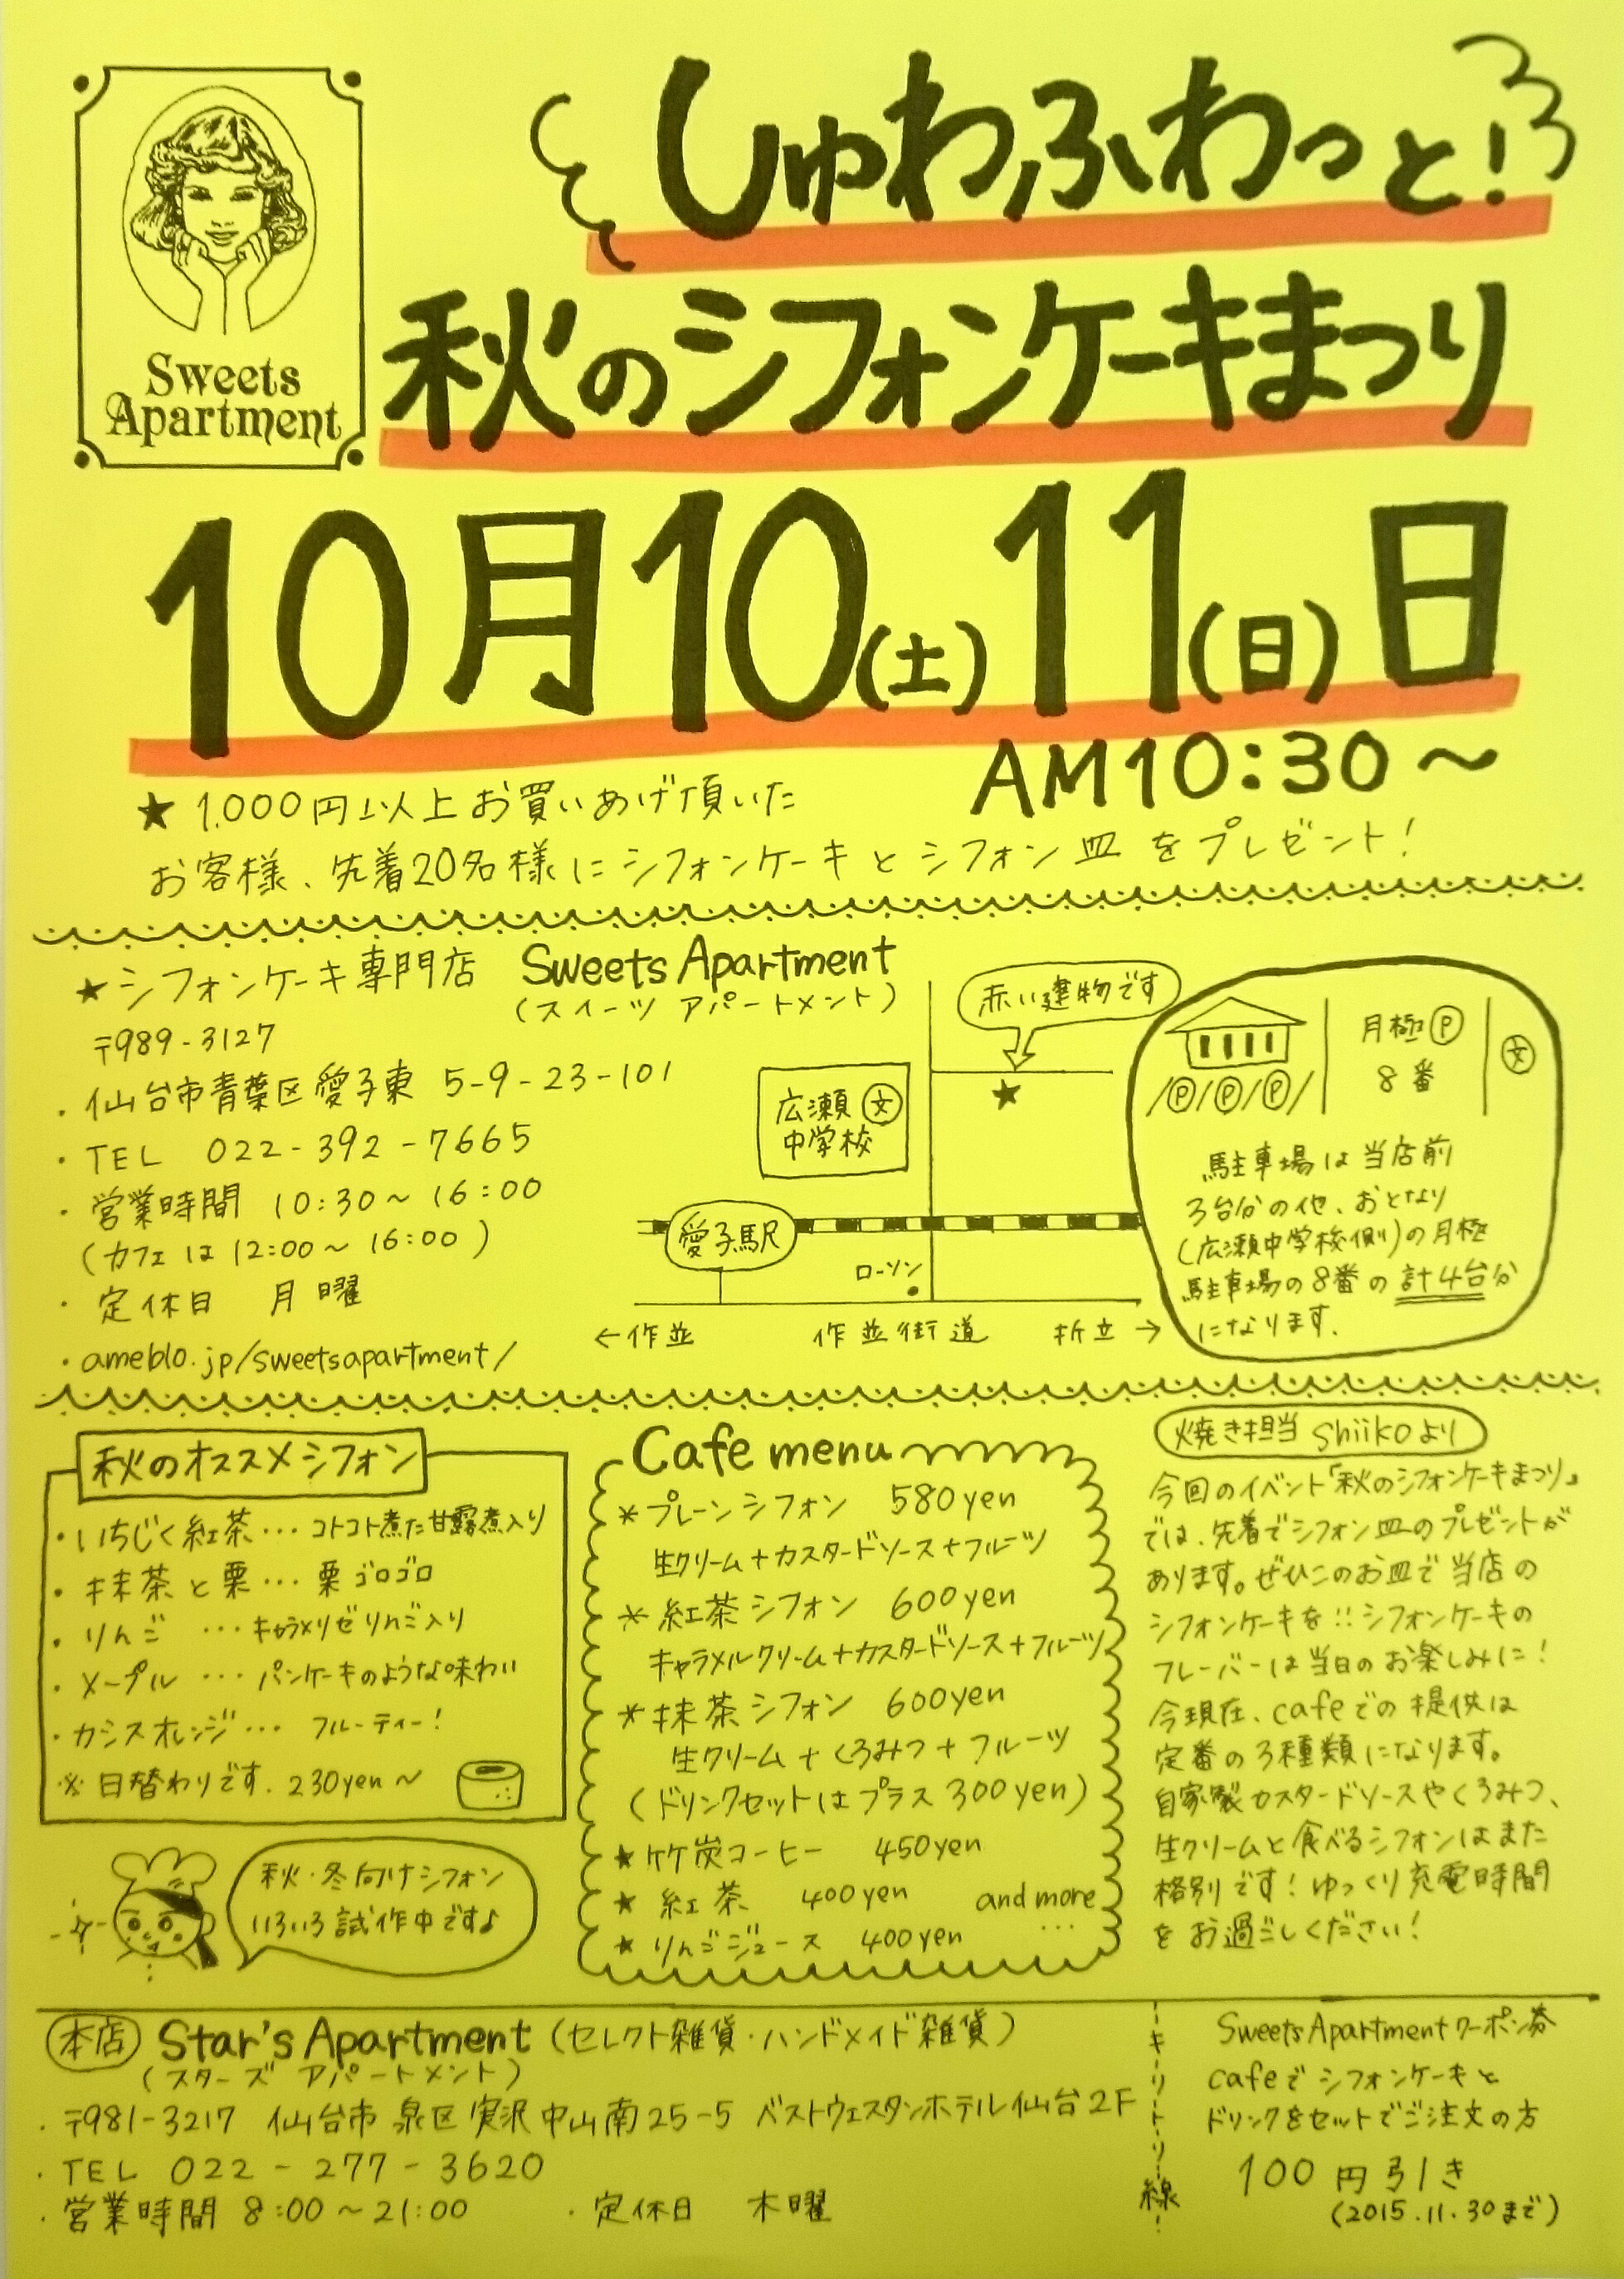 しゅわふわっと!
Sweets
Apartment
秋のシフォンケーキまつり
10月10(土)11(日)日
AM10:30〜
★ 1.000円以上お買いあげ頂いた
お客様、先着20名様にシフォンケーキとシフォン皿をプレゼント!
★シフォンケーキ専門店 Sweets Apartment
(スイーツ アパートメント)
〒989-3127
・仙台市青葉区愛子東 5-9-23-101
・TEL 022-392-7665
・営業時間 10:30〜16:00
(カフェは12:00〜16:00)
・定休日 月曜
・ameblo.jp/sweetsapartment/
赤い建物です
★
広瀬㊛
中学校
愛子駅
ローソン
←作並 作並街道 折立→
/Ⓟ/Ⓟ/Ⓟ/
月極Ⓟ
8番
文
駐車場は当店前
3台分の他、おとなり
(広瀬中学校側)の月極
駐車場の8番の計4台分
になります.
秋のオススメシフォン
・いちじく紅茶… コトコト煮た甘露煮入り
・抹茶と栗… 栗ゴロゴロ
・りんご … キャラメリゼりんご入り
・メープル … パンケーキのような味わい
・カシスオレンジ… フルーティー!
※日替わりです. 230yen〜
秋・冬向けシフォン
いろいろ試作中です♪
Cafe menu
*プレーンシフォン 580yen
生クリーム+カスタードソース+フルーツ
*紅茶シフォン 600yen
キャラメルクリーム+カスタードソース+フルーツ
*抹茶シフォン 600yen
生クリーム+くろみつ+フルーツ
(ドリンクセットはプラス300yen)
★竹炭コーヒー 450yen
★紅茶 400yen and more
★りんごジュース 400yen …
焼き担当 shiikoより
今回のイベント「秋のシフォンケーキまつり」
では、先着でシフォン皿のプレゼントが
あります。ぜひこのお皿で当店の
シフォンケーキを!!シフォンケーキの
フレーバーは当日のお楽しみに!
今現在、cafeでの提供は
定番の3種類になります。
自家製カスタードソースやくろみつ、
生クリームと食べるシフォンはまた
格別です!ゆっくり充電時間
をお過ごしください!
本店 Star's Apartment(セレクト雑貨・ハンドメイド雑貨)
(スターズ アパートメント)
・〒981-3217 仙台市泉区実沢中山南25-5 ベストウェスタンホテル仙台2F
・TEL 022-277-3620
・営業時間 8:00〜21:00 ・定休日 木曜
キリトリ線
Sweets Apartmentクーポン券
cafeでシフォンケーキと
ドリンクをセットでご注文の方
100円引き
(2015.11.30まで)